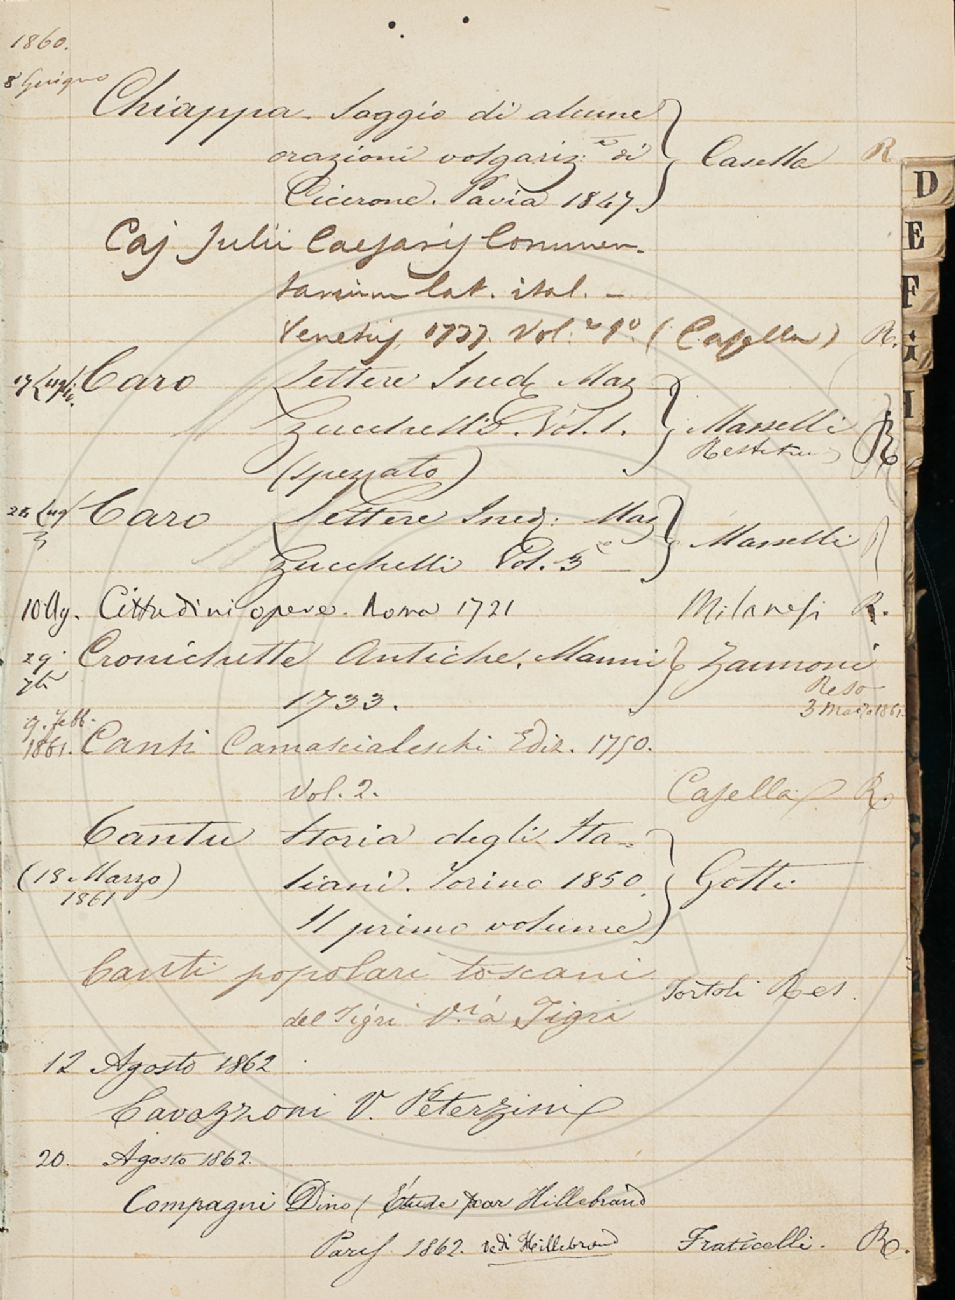 1860.
8 Giugno
Chiappa - Saggio di alcune
orazioni volgariz.e di Casella R
Cicerone. Pavia 1847.
Caj Julii Caesaris Commen-
tarium lat. ital. -
Venetijs, 1737. Vol. 1o. (Casella) R.
17 Luglio. Caro Lettere Ined. Maz
zucchelli. Vol. 1. Masselli R
(spezzato) Restituì
Lug Caro Lettere Ined: Maz
zucchelli Vol. 3 Masselli
10 Ag. Cittadini opere. Roma 1721 Milanesi R.
29 Cronichette Antiche. Manni Zannoni
7bre 1733. Reso
3 Marzo 1861
9. Febb.
1861. Canti Carnascialeschi Ediz. 1750.
Vol. 2. Casella R.
Cantu Storia degli Ita-
(13 Marzo) liani. Torino 1850. Gotti
1861
Il primo volume
Canti popolari toscani
del Tigri V. a Tigri Tortoli Res.
12 Agosto 1862
Cavazzoni V. Peterzini
20. Agosto 1862.
Compagni Dino / Étude par Hillebrand
Paris. 1862. vedi Hillebrand Fraticelli. R.
D
E
F
G
I